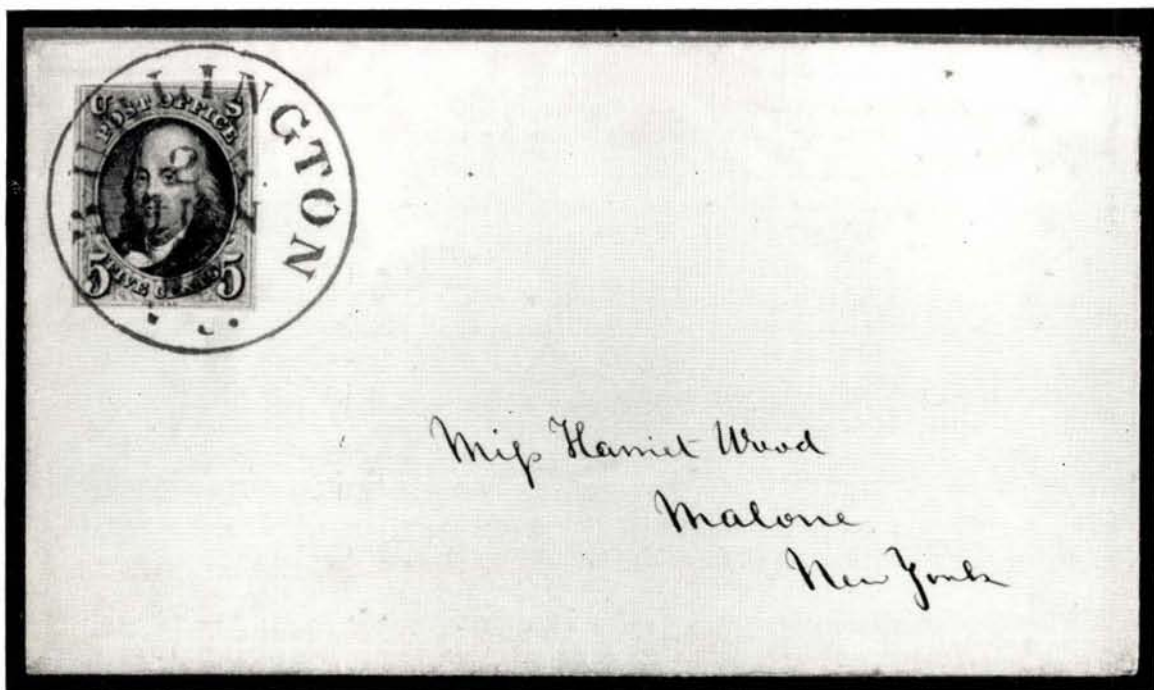 BURLINGTON
U S
POST OFFICE
5 FIVE CENTS 5
Miss Harriet Wood
Malone
New York